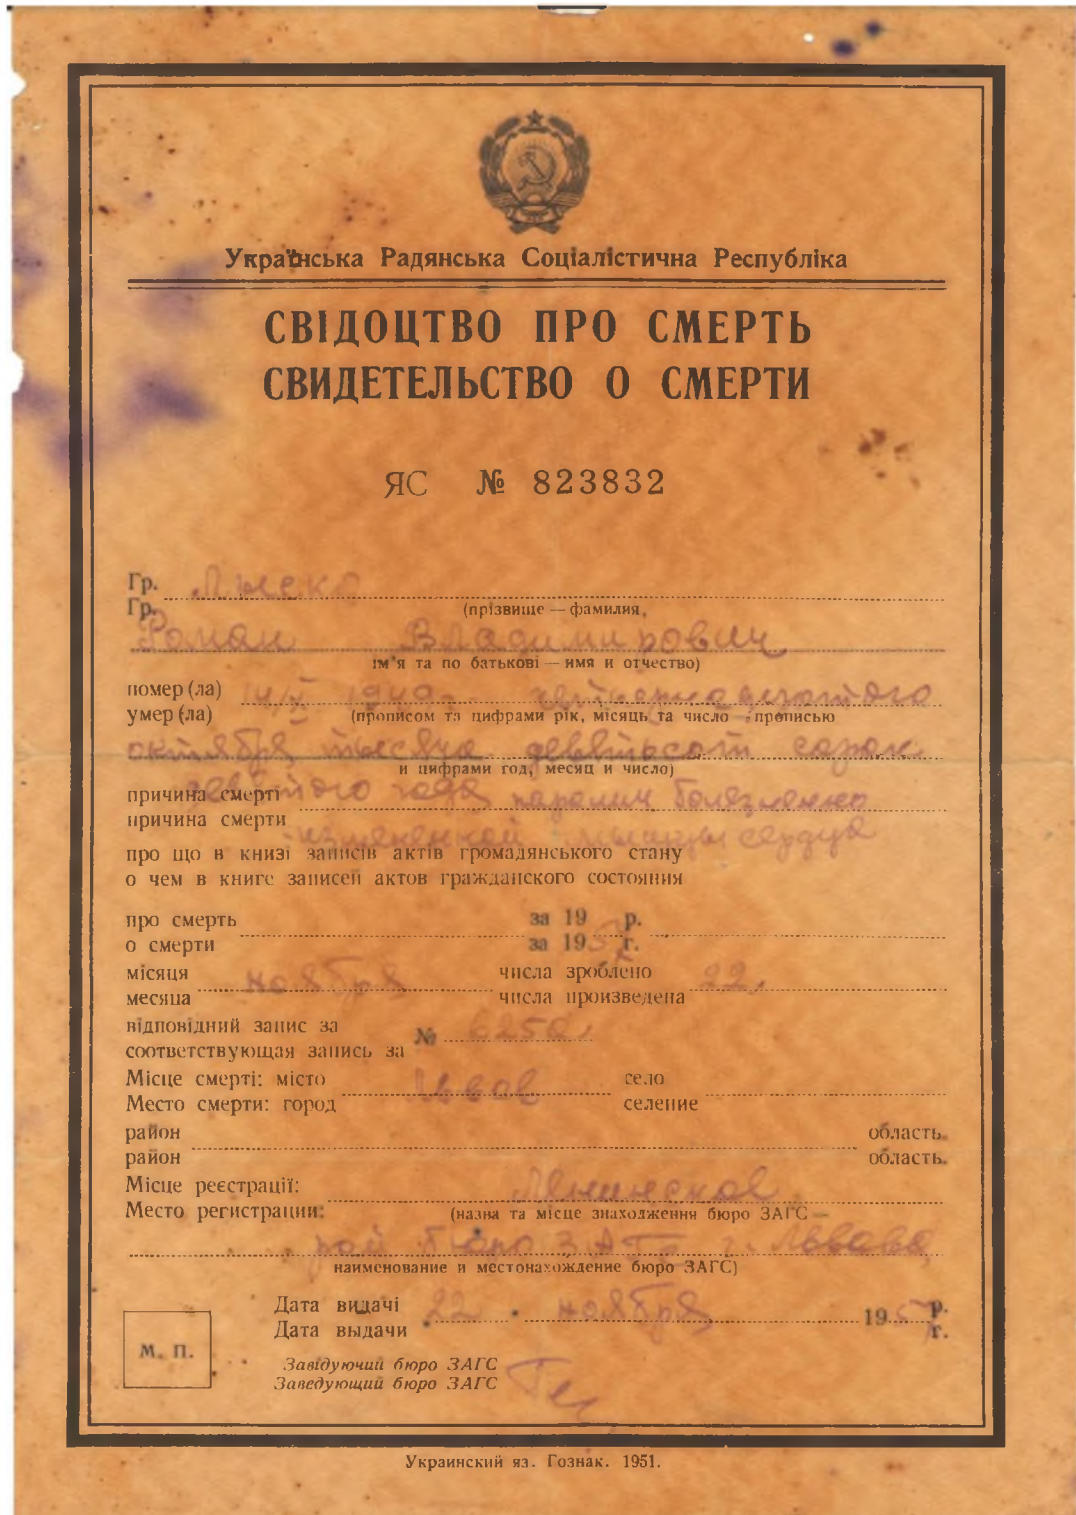 Українська Радянська Соціалістична Республіка
СВІДОЦТВО ПРО СМЕРТЬ
СВИДЕТЕЛЬСТВО О СМЕРТИ
ЯС № 823832
Гр. Лыско
Гр.
(прізвище — фамилия,
Роман Владимирович
ім'я та по батькові — имя и отчество)
помер (ла) 14/X 1949 четырнадцатого
умер (ла) (прописом та цифрами рік, місяць та число - прописью
октября тысяча девятьсот сорок
и цифрами год, месяц и число)
девятого года паралич болезненно
причина смерті
причина смерти
измененной мышцы сердца
про що в книзі записів актів громадянського стану
о чем в книге записей актов гражданского состояния
про смерть за 19 р.
о смерти за 195 г.
місяця числа зроблено
месяца ноября числа произведена 22
відповідний запис за
соответствующая запись за № 6250
Місце смерті: місто Львов село
Место смерти: город селение
район область.
район область.
Місце реєстрації:
Место регистрации: Ленинское
(назва та місце знаходження бюро ЗАГС —
рай бюро ЗАГС г. Львова
наименование и местонахождение бюро ЗАГС)
Дата видачі р.
Дата выдачи 22 ноября 195 г.
М. П.
Завідуючий бюро ЗАГС
Заведующий бюро ЗАГС
Украинский яз. Гознак. 1951.